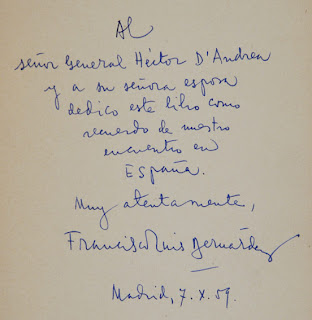 Al
señor General Héctor D'Andrea
y a su señora esposa
dedico este libro como
recuerdo de nuestro
encuentro en
ESPAÑA.
Muy atentamente,
Francisco Luis Bernárdez
Madrid, 7. X. 59.